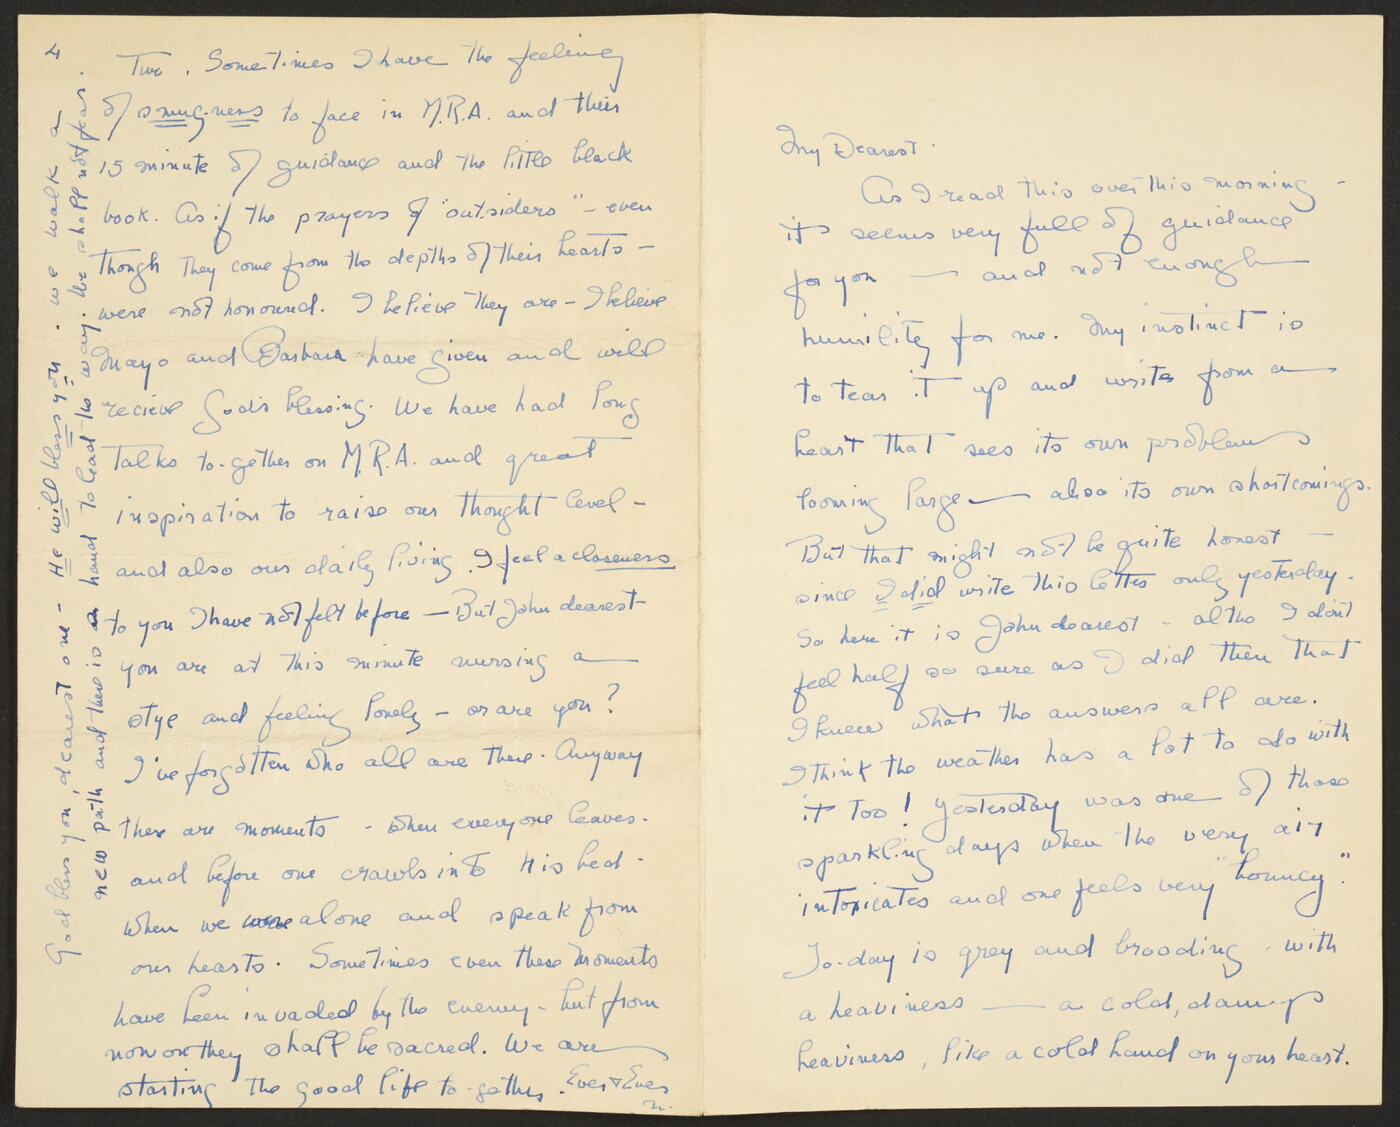 4
Two. Sometimes I have the feeling
of smug-ness to face in M.R.A. and their
15 minute of guidance and the little black
book. As if the prayers of "outsiders" - even
though they come from the depths of their hearts -
were not honoured. I believe they are - I believe
Mayo and Barbara have given and will
recieve God's blessing. We have had long
talks to-gether on M.R.A. and great
inspiration to raise our thought level -
and also our daily living. I feel a closeness
to you I have not felt before - But John dearest
you are at this minute nursing a
stye and feeling lonely - or are you?
I've forgotten who all are there. Anyway
there are moments - when everyone leaves.
and before one crawls into His bed -
when we were alone and speak from
our hearts. Sometimes even these moments
have been invaded by the enemy - but from
now on they shall be sacred. We are
starting the good life to-gether. Ever & Ever
n.
God bless you, dearest one - He will bless you. We walk a
new path and there is a hand to lead the way. We shall not fear.
My Dearest.
As I read this over this morning -
it seems very full of guidance
for you — and not enough
humility for me. My instinct is
to tear it up and write from a
heart that sees its own problems
looming large — also its own shortcomings.
But that might not be quite honest —
since I did write this letter only yesterday.
So here it is John dearest - altho I don't
feel half so sure as I did then that
I knew what the answers all are.
I think the weather has a lot to do with
it too! Yesterday was one of those
sparkling days when the very air
intoxicates and one feels very "bouncy".
To-day is grey and brooding. with
a heaviness — a cold, damp
heaviness, like a cold hand on your heart.